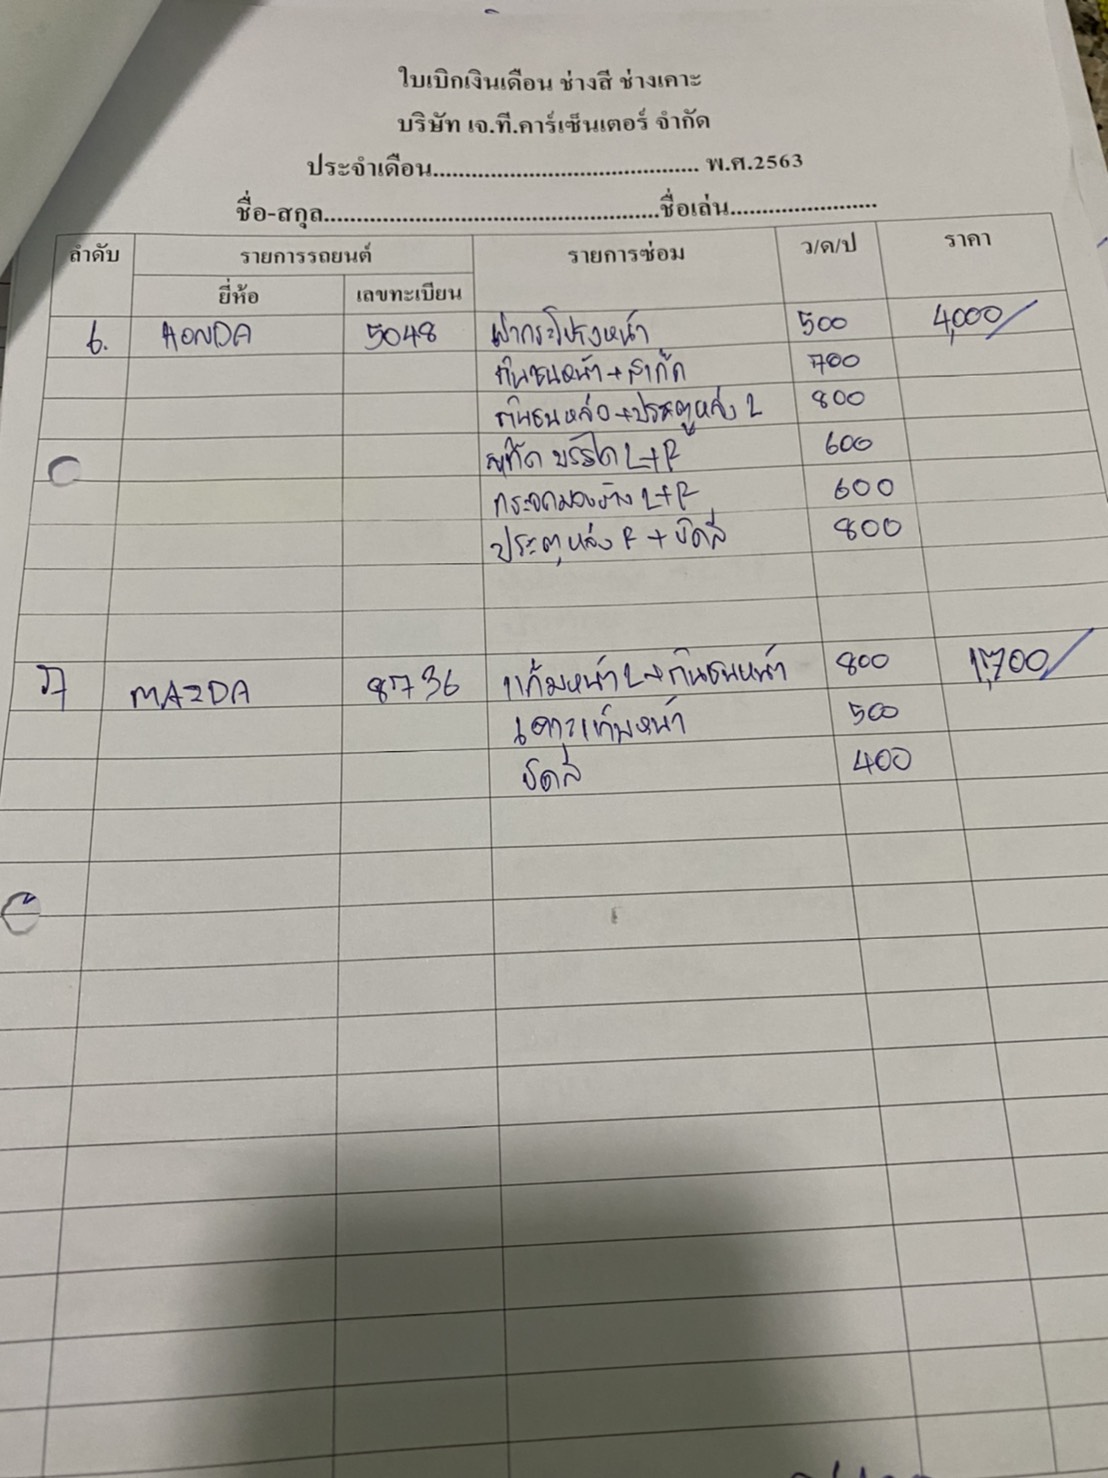 ใบเบิกเงินเดือน ช่างสี ช่างเคาะ
บริษัท เจ.ที.คาร์เซ็นเตอร์ จำกัด
ประจำเดือน.......................................... พ.ศ.2563
ชื่อ-สกุล....................................................ชื่อเล่น.......................
ลำดับ รายการรถยนต์ รายการซ่อม ว/ด/ป ราคา
ยี่ห้อ เลขทะเบียน
6. HONDA 5048 ฝากระโปรงหน้า 500 4,000/
กันชนหน้า+สเกิ๊ต 700
กันชนหลัง+ประตูหลัง L 800
บรรได L+R 600
กระจกมองข้าง L+R 600
ประตูหลัง R + ขัดสี 800
7 MAZDA 8736 แก้มหน้า L+กันชนหน้า 800 1,700/
เคาะแก้มหน้า 500
ขัดสี 400